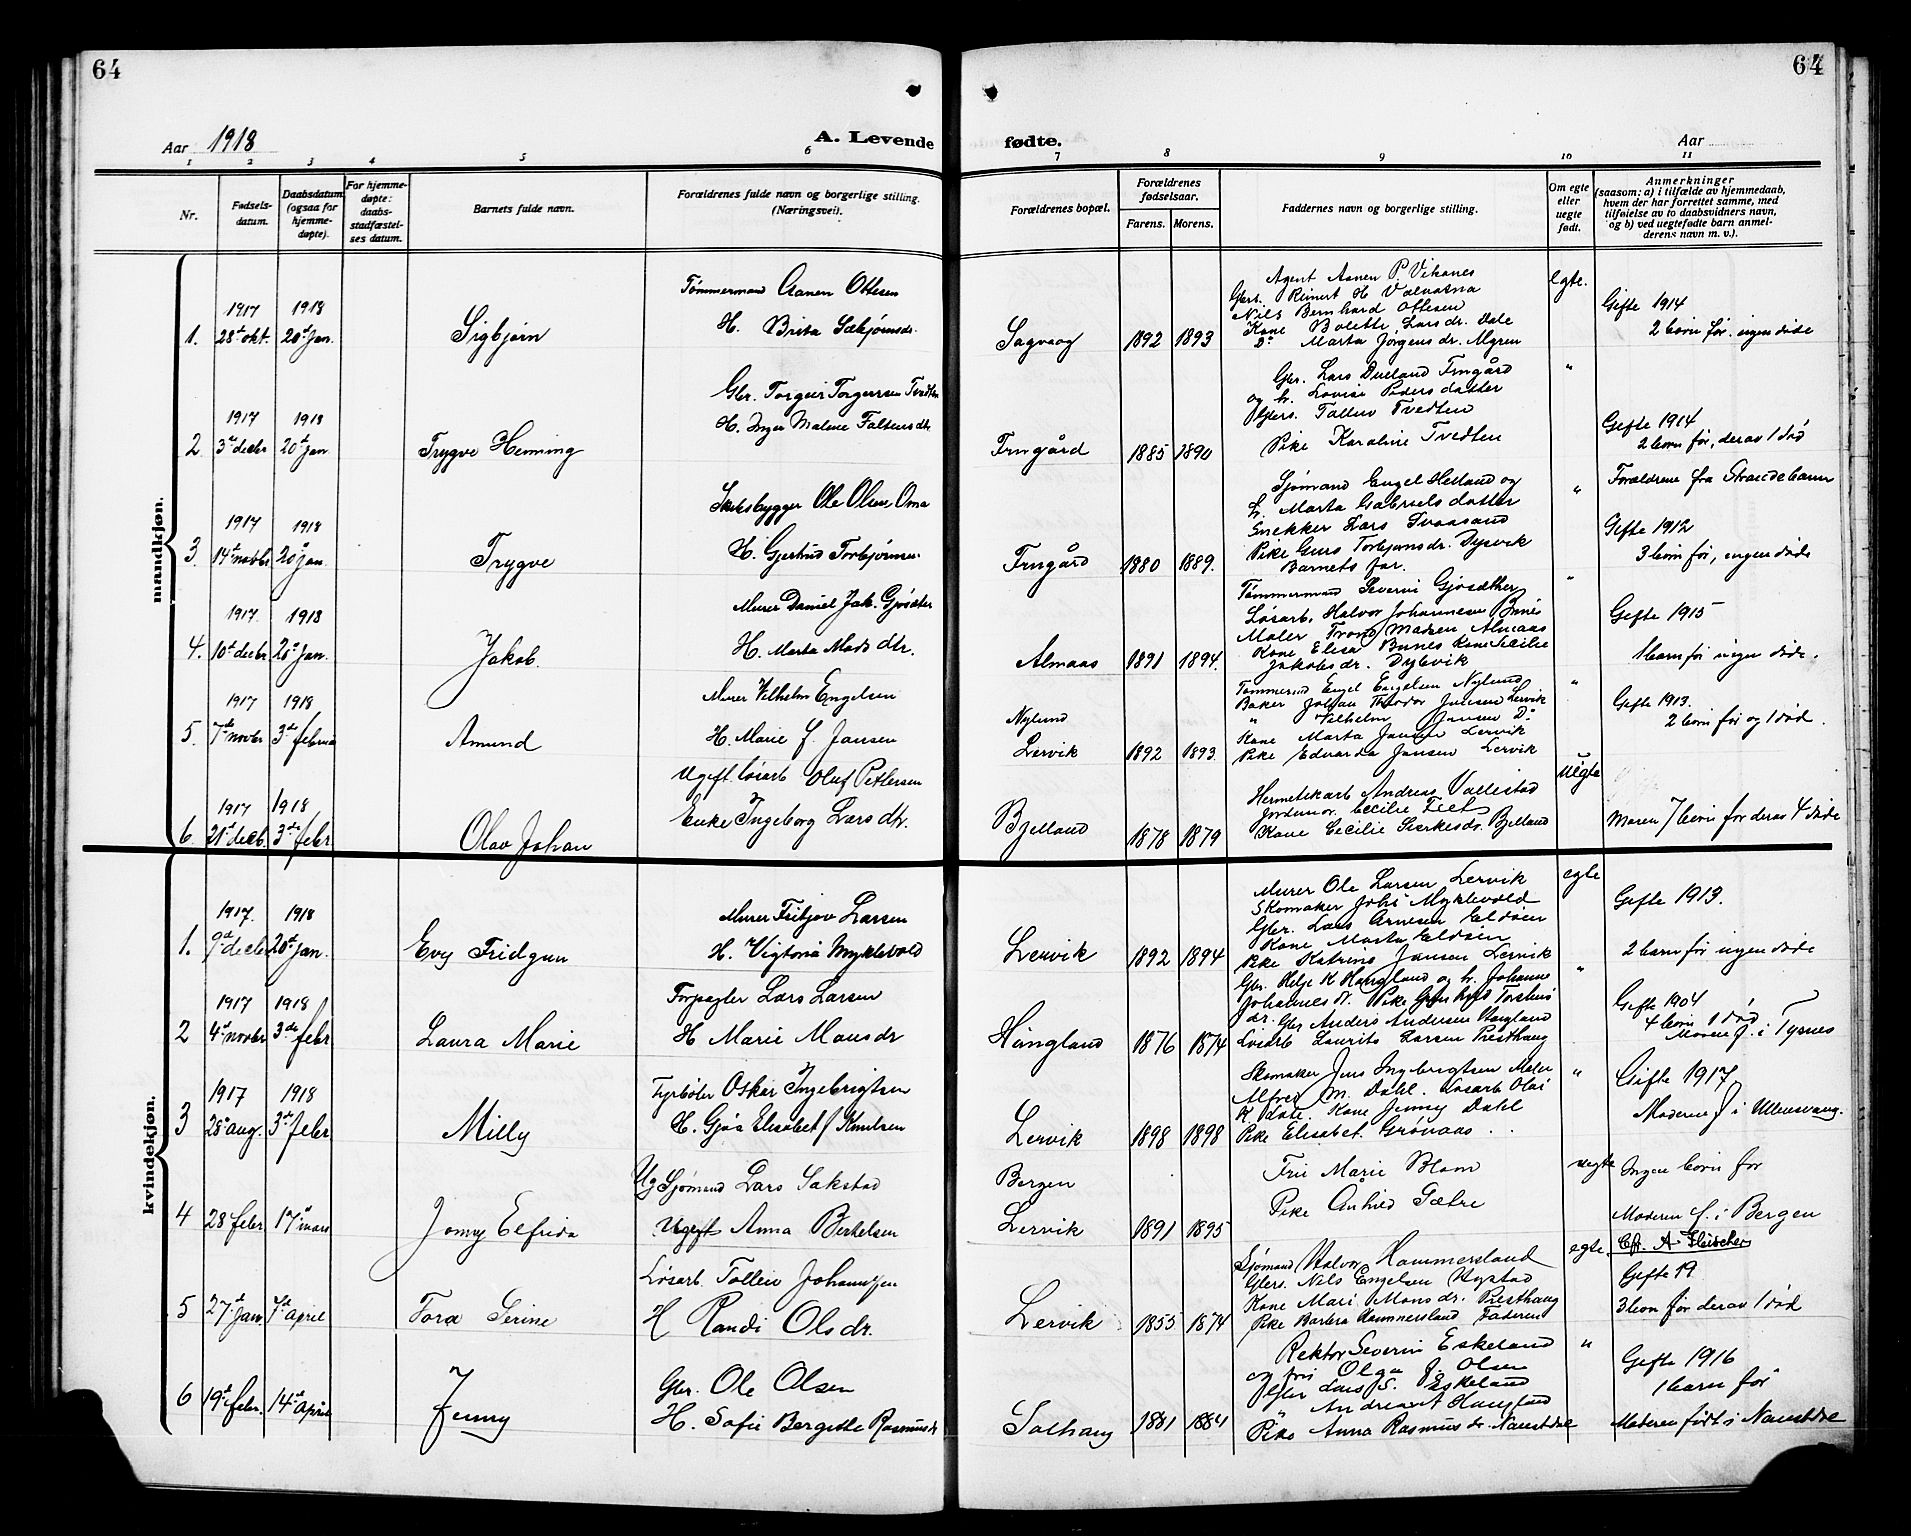 64
64
Aar 1918
A. Levende
fødte.
Aar
1 2 3 4 5 6 7 8 9 10 11
Nr.
Fødsels-
datum.
Daabsdatum
(ogsaa for
hjemme-
døpte).
For hjemme-
døpte:
daabs-
stadfæstel-
ses datum.
Barnets fulde navn.
Forældrenes fulde navn og borgerlige stilling.
(Næringsvei).
Forældrenes bopæl.
Forældrenes
fødselsaar.
Farens. Morens.
Faddernes navn og borgerlige stilling.
Om egte
eller
uegte
født.
Anmerkninger
(saasom: a) i tilfælde av hjemmedaab,
hvem der har forrettet samme, med
tilføielse av to daabsvidners navn,
og b) ved uegtefødte barn anmel-
derens navn m. v.).
mandkjøn.
1. 1917 28de okt. 1918 20de jan. Sigbjørn
Tømmermand Aanen Ottesen
H. Brita Sæbjørnsdr.
Sagvaag 1892 1893
Agent Aanen P. Vikanes
Gbrs. Reinert H. Valvatna
Nils Bernhard Ottesen
Kone Bolette Larsdr. Dale
Do Marta Jørgensdr. Mgren
egte.
Gifte 1914
2 born før. ingen døde
2 1917 3de decbr 1918 20de jan Trygve Henning
Gbr. Torgeir Torgersen Tvedten
H. Inger Malene Faltensdtr.
Frngård 1885 1890
Gbr. Lars Dueland Frngård
og h. Lovise Pedersdatter
Gbrs. Tallev Tvedten
Pike Karoline Tvedten
"
Gifte 1914
2 born før, derav 1 død
Forældrene fra Strandebarm
3. 1917 14de novbr 1918 20de jan. Trygve
Skibsbygger Ole Olsen Oma
H. Gjertrud Torbjørnsen
Frngård 1880 1889.
Sjømand Engel Helland og
h. Marta Gabrielsdatter
Snekker Lars Tvaasand
Pike Guro Torbjørnsdr. Dysvik
Barnets far.
"
Gifte 1912
3 born før, ingen døde
4. 1917. 10de decbr 1918 20de jan. Jakob
Murer Daniel Jak. Gjøsæter
H. Marta Mads dtr.
Almaas 1891 1894.
Tømmermand Severin Gjøsæther
Løsarb. Halvor Johannesen Bunes
Maler Trond Madsen Almaas
Kone Elisa Bunes Kone Cecilie
Jakobsdr. Dybvik
"
Gifte 1915
1 barn før ingen døde.
5. 1917 7de novbr 1918 3de februar Amund
Murer Vilhelm Engelsen
H. Marie f. Jansen
Nylund
Lervik 1892 1893.
Tømmermd Engel Engelsen Nylund
Baker Johan Theodor Jansen Lervik
" Vilhelm Jansen Do
Kone Marta Jansen Lervik
Pike Edvarda Jansen Lervik
"
Gifte 1913.
2 born før og 1 død.
6. 1917 21de decb. 1918 3de febr. Olav Johan
Ugift løsarb Oluf Pettersen
Enke Ingeborg Larsdtr.
Bjelland 1878 1879
Hermetikarb Andreas Vallestad
Jordemor Cecilie Teet
Kone Cecilie Sjerkesdr. Bjelland
uegte
Moren 7 born før derav 4 døde
kvindekjøn.
1. 1917. 9de decbr 1918 20de jan. Evy Fridgun
Murer Fritjov Larsen
H. Vigtoria Myklevold
Lervik 1892 1894
Murer Ole Larsen Lervik
Skomaker Johs Myklevold
Gbr. Lars Arnesen Eldøen
Kone Marta Eldøen
Pike Katrine Jansen Lervik
egte
Gifte 1913.
2 barn før ingen døde
2 1917 4de novbr 1918 3de febr Laura Marie
Forpagter Lars Larsen
H. Marie Mansdr
Hångland 1876 1874
Gbr. Helje K Hangland og h. Johanne
Johannesdr. Pike Gunhild Torsheims
dr. Gbr Anders Andersen Hangland
Løsarb Laurits Larsen Presthaug
"
Gifte 1904
4 born 1 død
Moren f. i Tysnes
3 1917 28de aug. 1918 3de febr Milly
Fyrbøter Oskar Ingebrigtsen
H. Gjøa Elisabet f. Knutsen
Lervik 1898 1898
Skomaker Jens Ingbrigtsen Maler
Alfred M. Dahl. Løsarb Olai
K Date. Kone Jenny Dahl
Pike Elisabet. Grønaas
"
Gifte 1917
Moderen f i Ullensvang.
4 28 febr 17de mars Jonny Elfrida
Ug Sjømand Lars Sakstad
Ugift Anna Bertelsen
Bergen
Lervik 1891 1895
Fru Marie Blom
Pike Anhild Sætre
uegte
Ingen born før
Moderen f. i Bergen
Cft. A Fleischer
5 27de jan. 7de april Tora Serine
Løsarb. Tollev Johannesen
H Randi Olsdr.
Lervik 1855 1874
Sjømand Halvor Hammersland
Gbrs. Nils Engelsen Nystad
Kone Mari Monsdr. Presthaug
Pike Barbra Hammersland Faderen
egte.
Gifte 19
3 born før derav 1 død
6 19de febr. 14de april Jenny
Gbr. Ole Olsen
H. Sofie Bergitte Rasmusdr
Solhaug 1881 1884
Rektor Severin Eskeland
og fru Olga J. Olsen
Gbr Lars S. Eskeland
" Andreas A Haugland
Pike Anna Rasmusdr. Naustdal
"
Gifte 1916
1 barn før
Moderen født i Naustdal